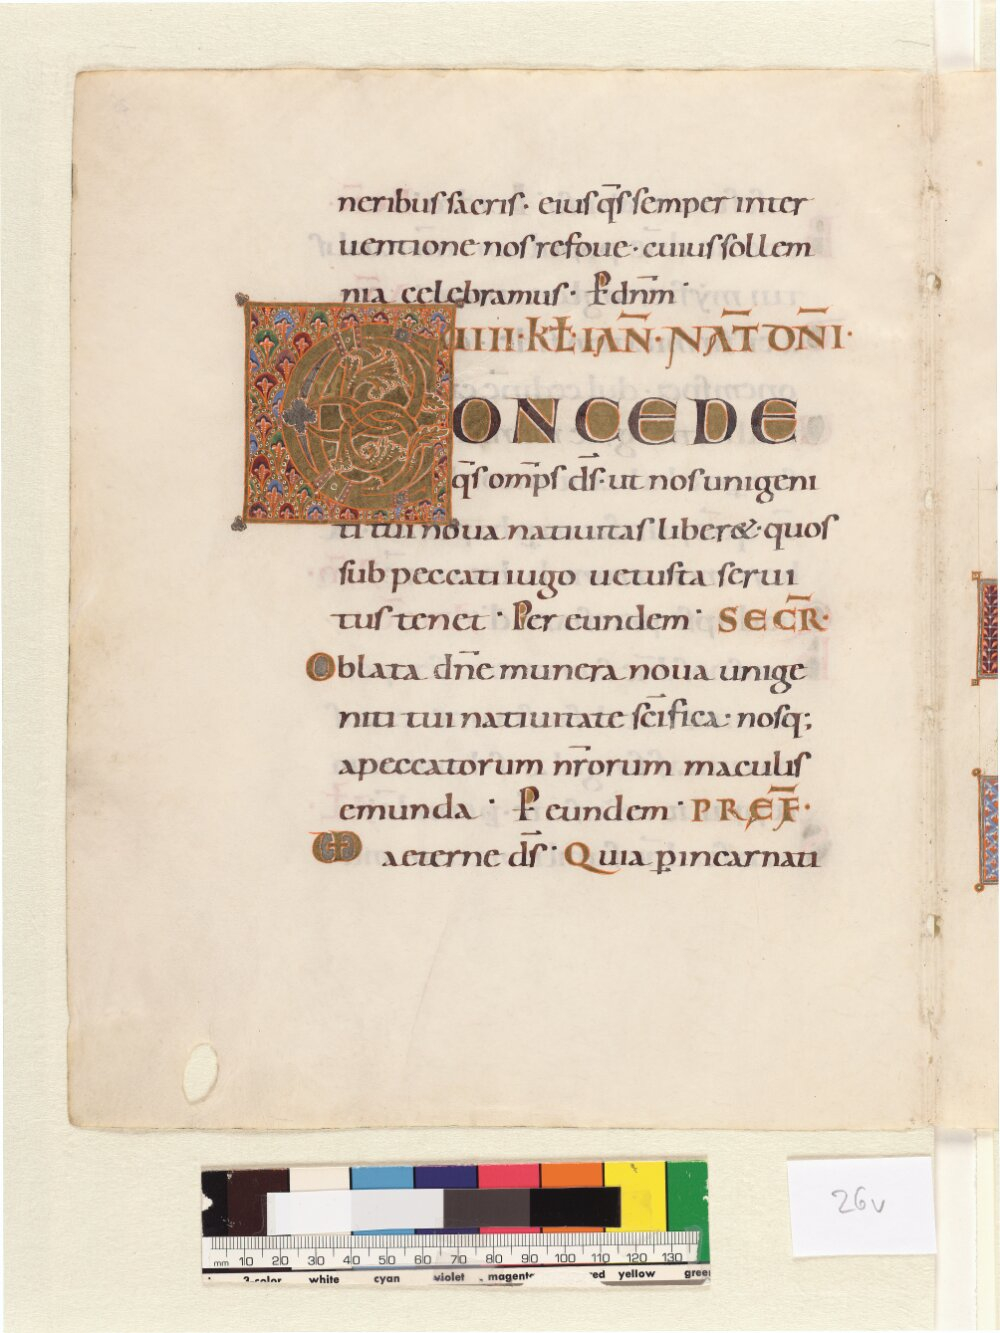 neribus sacris· eius q̄s semper inter
uentione nos refoue· cuius sollem
nia celebramus· P dn̄m·
UIIII·KŁ·IAN̄·NAT̄ DO̅NI·
CONCEDE
q̄s omp̄s d̄s· ut nos unigeni
ti tui noua natiuitas liber&· quos
sub peccati iugo uetusta serui
tus tenet· Per eundem· SECR̄·
Oblata dn̄e munera noua unige
niti tui natiuitate sc̄ifica· nosq;
a peccatorum nr̄orum maculis
emunda· P eundem· PREF̄·
aeterne d̄s· Quia p incarnati
26v
mm 10 20 30 40 50 60 70 80 90 100 110 120 130
3-color white cyan violet magenta red yellow green